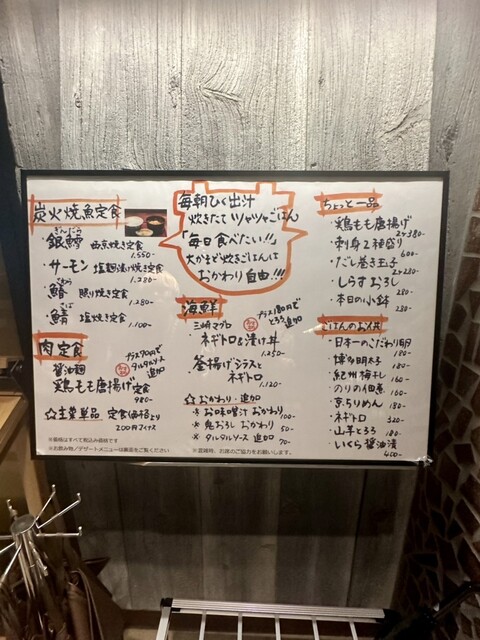 炭火焼魚定食
ぎんだら
・銀鱈 西京焼き定食
1.550-
・サーモン 塩麹漬け焼き定食
1.280-
・鰆 照り焼き定食
1.280-
さば
・鯖 塩焼き定食
1.100-
肉定食
プラス90円で
タルタルソース
追加
醤油麹
鶏もも唐揚げ定食
980-
☆主菜単品 定食価格より
200円マイナス
※価格はすべて税込み価格です
※お飲み物/デザートメニューは裏面をご覧ください
毎朝ひく出汁
炊きたてツヤツヤごはん
「毎日食べたい!!」
大かまど炊きごはんは
おかわり自由!!!
海鮮
プラス180円で
とろろ追加
三崎マグロ
ネギトロ&漬け丼
1.250-
釜揚げシラスと
ネギトロ
1.120-
☆おかわり・追加
※お味噌汁 おかわり 100-
※鬼おろし おかわり 50-
※タルタルソース 追加 70-
※混雑時、お席のご協力をお願いします。
ちょっと一品
・鶏もも唐揚げ
2ヶ380-
・刺身2種盛り
600-
・だし巻き玉子
2ヶ280-
・しらすおろし
280-
・本日の小鉢
280-
ごはんのお供
・日本一のこだわり卵
180-
・博多明太子
180-
・紀州梅干し
160-
・のりの佃煮
160-
・京ちりめん 180-
・ネギトロ 320-
・山芋とろろ 180-
・いくら醤油漬
450-